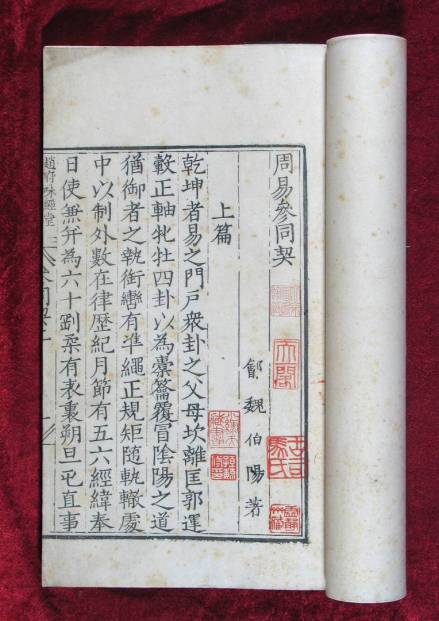 周易參同契
鄶魏伯陽著
上篇
乾坤者易之門戶衆卦之父母坎離匡郭運
轂正軸牝牡四卦以為橐籥覆冒陰陽之道
猶御者之執銜轡有準繩正規矩隨軌轍處
中以制外數在律歷紀月節有五六經緯奉
日使兼并為六十剛柔有表裏朔旦屯直事
趙府味經堂